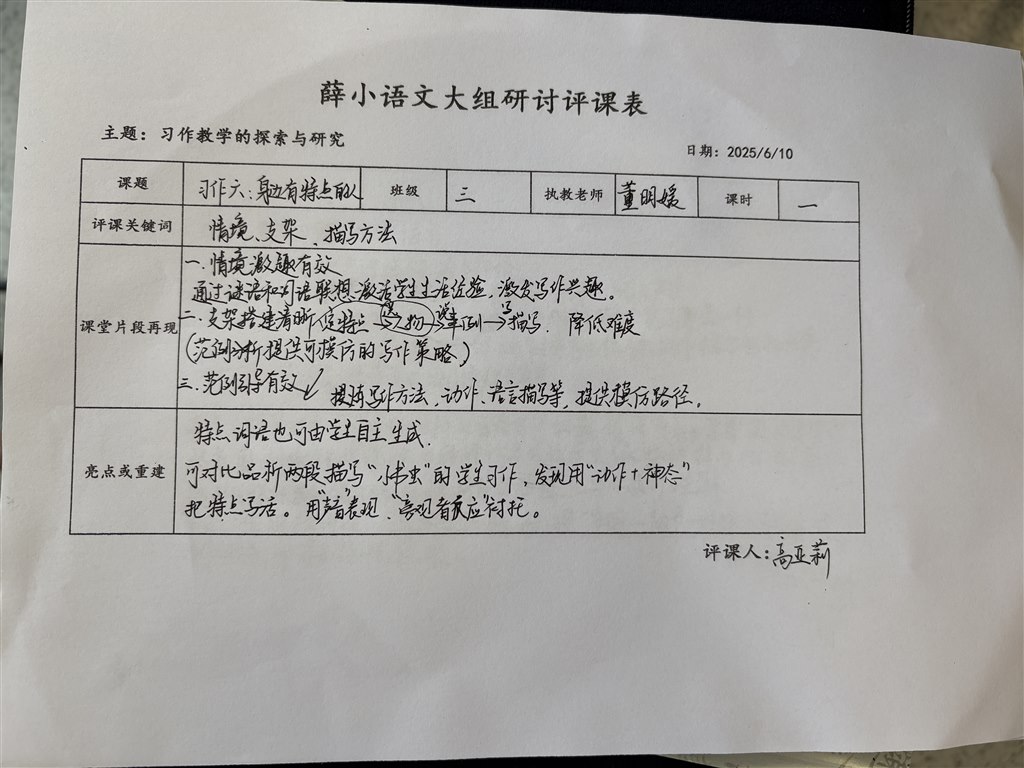 薛小语文大组研讨评课表
主题：习作教学的探索与研究
日期：2025/6/10
课题 习作六：身边有特点的人 班级 三 执教老师 董明媛 课时 一
评课关键词 情境、支架、描写方法
课堂片段再现
一.情境激趣有效
通过谜语和词语联想激活学生生活经验，激发写作兴趣。
二.支架搭建清晰 定特点→人物→事例→写描写. 降低难度
(范例分析提供可模仿的写作策略)
三.范例引导有效 提炼写作方法，动作、语言描写等，提供模仿路径。
亮点或重建
特点词语也可由学生自主生成.
可对比品析两段描写"小书虫"的学生习作，发现用"动作+神态"
把特点写活。用"声音"表现，"旁观者反应"衬托。
评课人：高亚莉